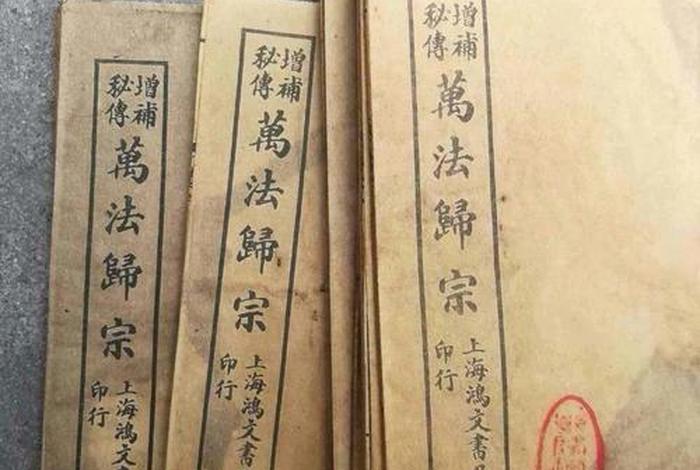 增補
秘傳
萬法歸宗
上海鴻文書
印行
增補
秘傳
萬法歸宗
上海鴻文書
印行
增補
秘傳
萬法歸宗
上海鴻文書
印行